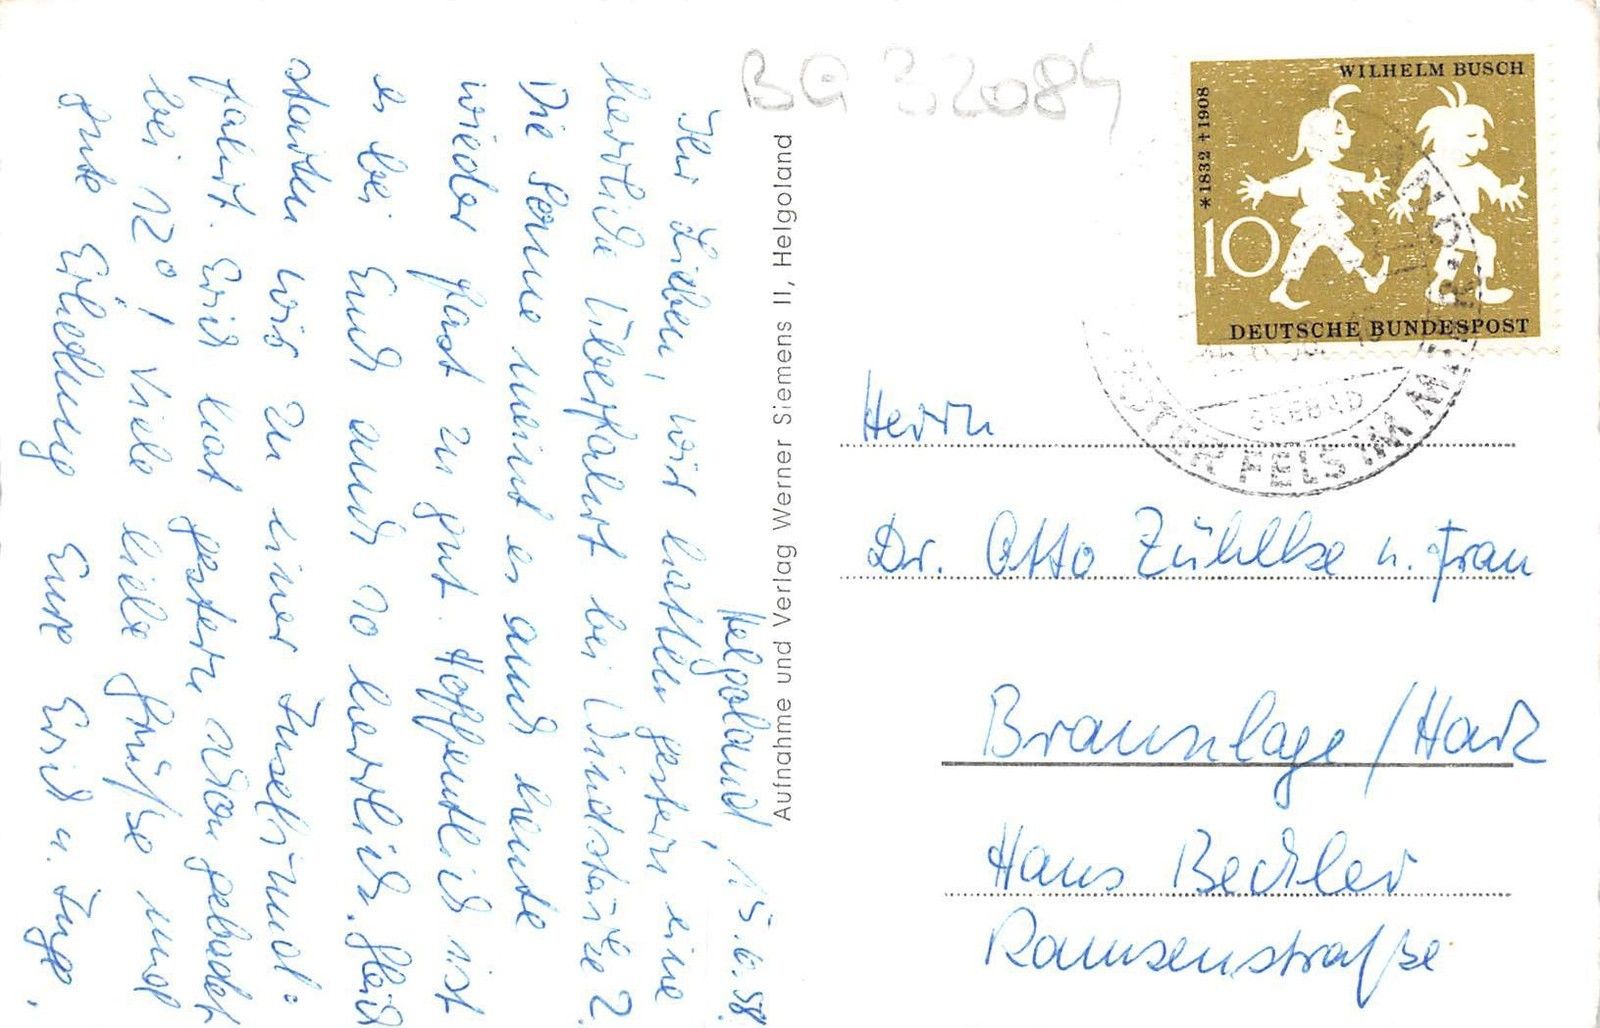 BQ 32084
WILHELM BUSCH
*1832 †1908
10
DEUTSCHE BUNDESPOST
SEEBAD
FELS IM
Helgoland, 15.6.58.
Ihr Lieben, wir hatten gestern eine
herrliche Überfahrt bei Windstärke 2.
Die Sonne meint es auch heute
wieder fast zu gut. Hoffentlich ist
es bei Euch auch so herrlich. Gleich
starten wir zu einer Inselrund=
fahrt. Erich hat gestern schon gebadet
bei 12°! Viele liebe Grüße und
gute Erholung Eure Erich u. Inge.
Aufnahme und Verlag Werner Siemens II, Helgoland
Herrn
Dr. Otto Zühlke u. Frau
Braunlage/Harz
Haus Bechler
Ramsenstraße